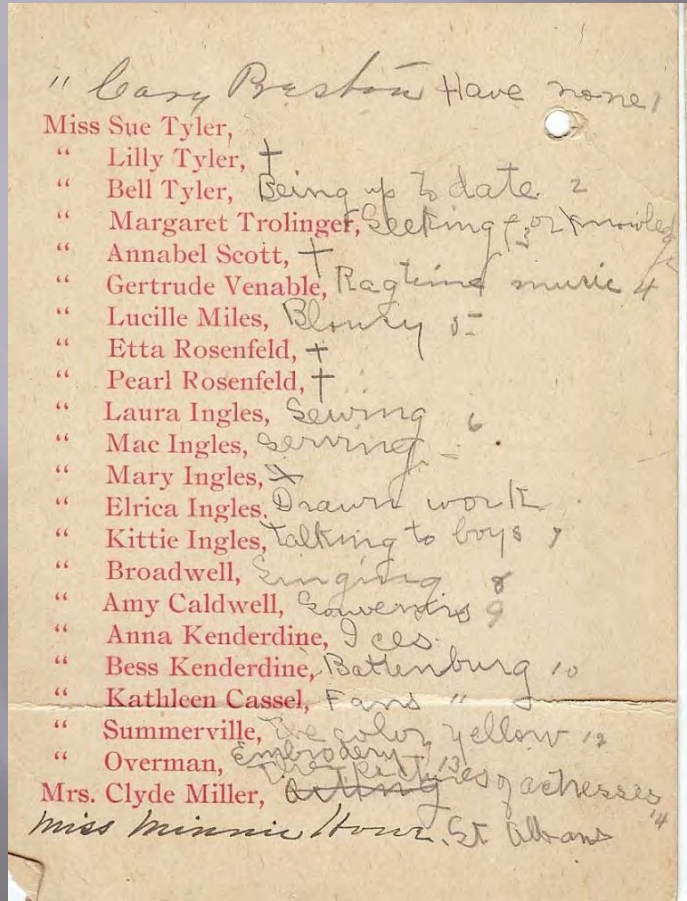 " Cary Preston Have none 1
Miss Sue Tyler,
“ Lilly Tyler, †
“ Bell Tyler, Being up to date. 2
“ Margaret Trolinger, Seeking for knowledge 3
“ Annabel Scott, †
“ Gertrude Venable, Ragtime music 4
“ Lucille Miles, 5
“ Etta Rosenfeld, +
“ Pearl Rosenfeld, †
“ Laura Ingles, Sewing 6
“ Mac Ingles,
“ Mary Ingles, x
“ Elrica Ingles. Drawn work
“ Kittie Ingles, talking to boys 7
“ Broadwell, Singing 8
“ Amy Caldwell, Souvenirs 9
“ Anna Kenderdine, Ices.
“ Bess Kenderdine, Battenburg 10
“ Kathleen Cassel, Fans "
“ Summerville, The color yellow 12
“ Overman, Embrodery 13
The Pictures of actresses 14
Mrs. Clyde Miller, Acting
Miss Minnie St Albans